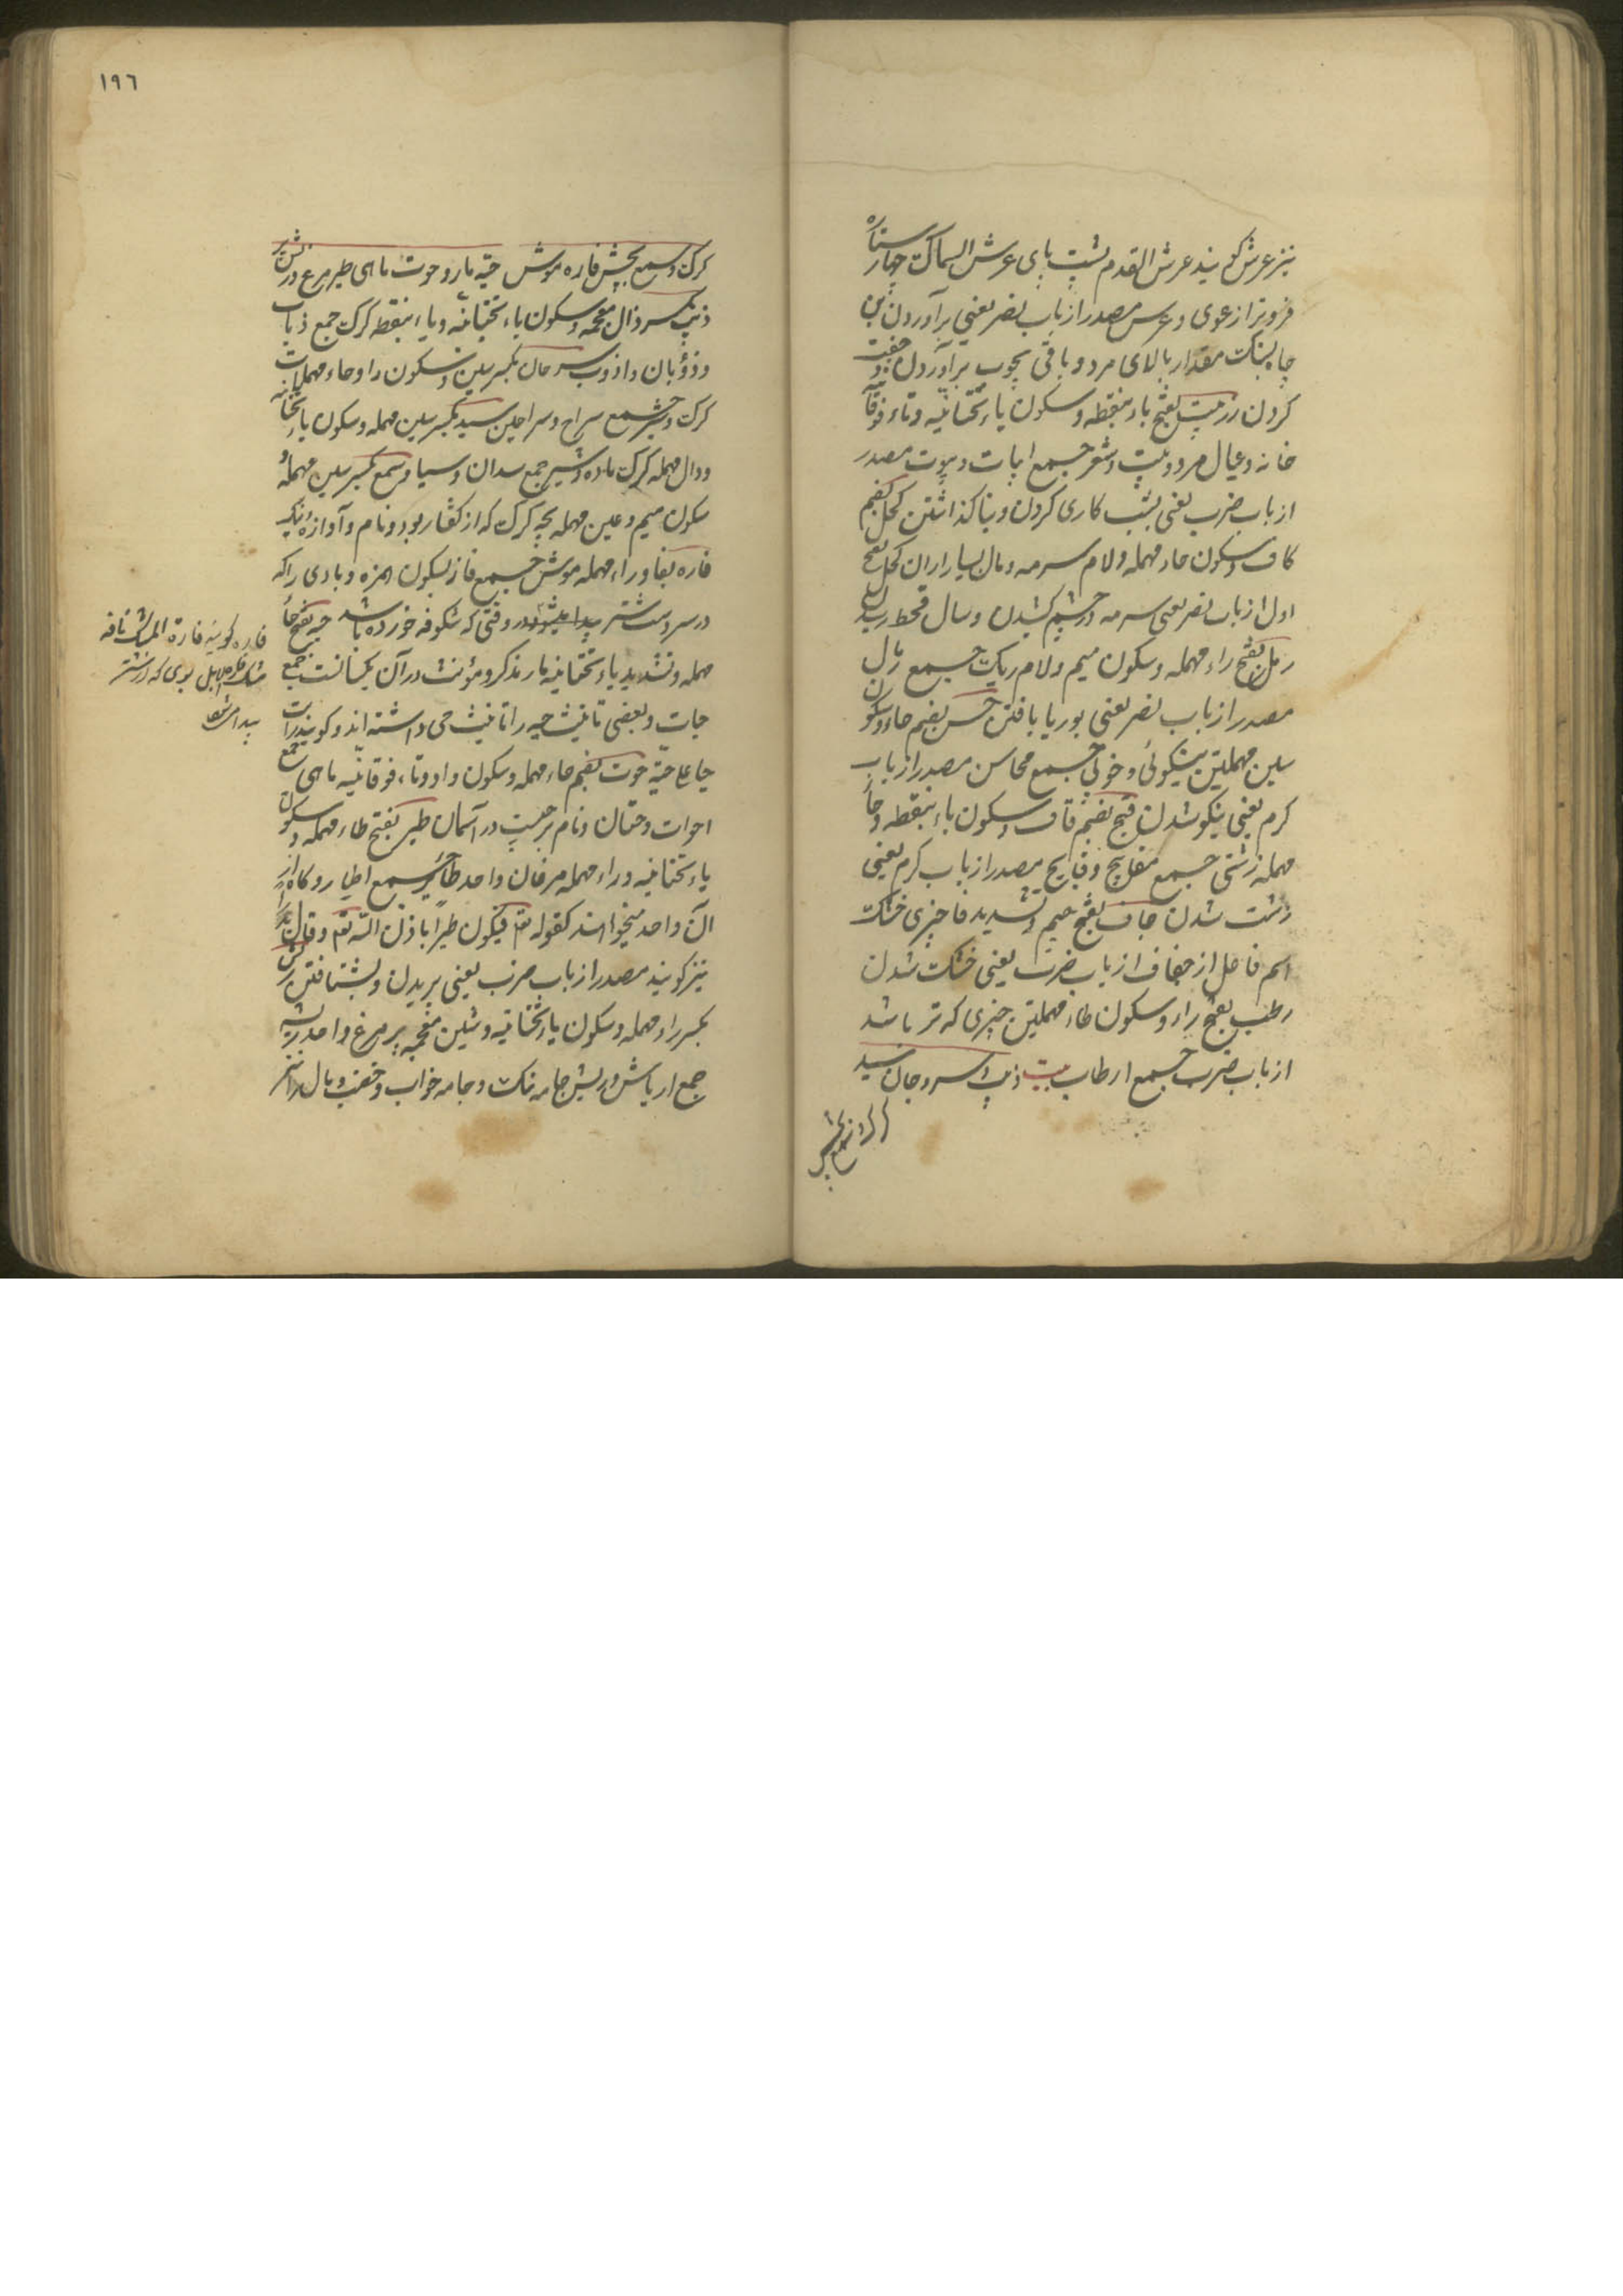 نیز عرش کویند عرش القدم پشت پای عرش السماک چهار ستاره
فروتر از عوی و عرش مصدر از باب نصر یعنی برآوردن بن
چاه بسنک مقدار بالای مرد و باقی بچوب برآوردن و
کردن رز بیت بفتح باء بنقطه و سکون یاء تحتانیه و تاء فوقانیه
خانه و عیال مرد و بیت و شعر جمع ابیات و بیوت مصدر
از باب ضرب یعنی بشب کاری کردن و بنا کذاشتن کحل بضم
کاف و سکون حاء مهمله و لام سرمه و مال بسیار از ان کحل بفتح
اول از باب نصر یعنی سرمه در چشم کشیدن و سال قحط رسیدن
رمل بفتح راء مهمله و سکون میم و لام ریک جمع رمال
مصدر از باب نصر یعنی بوریا بافتن حسن بضم حاء و سکون
سین مهملتین نیکوئی و خوبی جمع محاسن مصدر از باب
کرم یعنی نیکو شدن قبح بضم قاف و سکون باء بنقطه و حاء
مهمله زشتی جمع مقابح و قبایح مصدر از باب کرم یعنی
زشت شدن جاف بفتح جیم و تشدید فا چیزی خشک
اسم فاعل از جفاف از باب ضرب یعنی خشک شدن
رطب بفتح راء و سکون طاء مهملتین چیزی که تر باشد
از باب ضرب جمع ارطاب بیت ذیب و سرحان سید
۱۹٦
کرک و سمع بچش فاره موش حیه مار و حوت ماهی طیر مرغ و ریش پر
ذیب بکسر ذال معجمه و سکون یاء تحتانیه و باء بنقطه کرک جمع ذیاب
و ذؤبان و اذوب سرحان بکسر سین و سکون را و حاء مهملات
کرک و شیر جمع سراح و سراحین سید بکسر سین مهمله و سکون یاء تحتانیه
و دال مهمله کرک ماده و شیر جمع سدان و سیا و سمع بکسر سین مهمله و
سکون میم و عین مهمله بچه کرک که از کفتار بود و نام و آوازه نیک
فاره بفا و راء مهمله موش جمع فار بسکون همزه و بادی را که
در سر دست شتر پیدا میشود در وقتی که شکوفه خورده باشد حیه بفتح حاء
مهمله و تشدید یاء تحتانیه مار مذکر و مؤنث در آن یکسانست جمع
حیات و بعضی تانیث حیه را تانیث حی داشته اند و کویند رایت
حیا علی حیة حوت بضم حاء مهمله و سکون واو و تاء فوقانیه ماهی جمع
احوات و حیتان و نام برجیست در آسمان طیر بفتح طاء مهمله و سکون
یاء تحتانیه و راء مهمله مرغان واحد طائر جمع اطیار و کاه از
آن واحد میخواهند کقوله تع فیکون طیرا باذن الله تع و قال
نیز کویند مصدر از باب ضرب یعنی پریدن و بشتافتن ریش
بکسر راء مهمله و سکون یاء تحتانیه و شین معجمه پر مرغ واحد ریشه
جمع ارياش و ریش جامه نیک و جامه خواب و خصب و مال را نیز
فاره کویند فارة المسک نافه
مشک فارة الابل بوی که از شتر
پیدا میشود